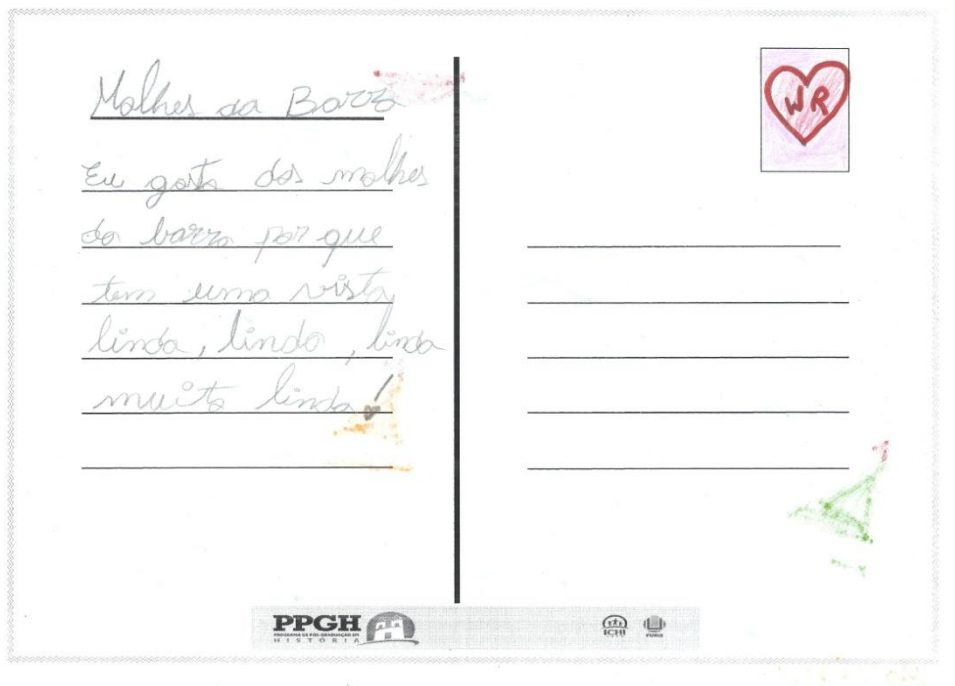 Molhes da Barra
Eu gosto dos molhes
da barra por que
tem uma vista
linda, linda, linda
muito linda!
WR
PPGH
PROGRAMA DE PÓS-GRADUAÇÃO EM
HISTÓRIA
ICHI
FURG